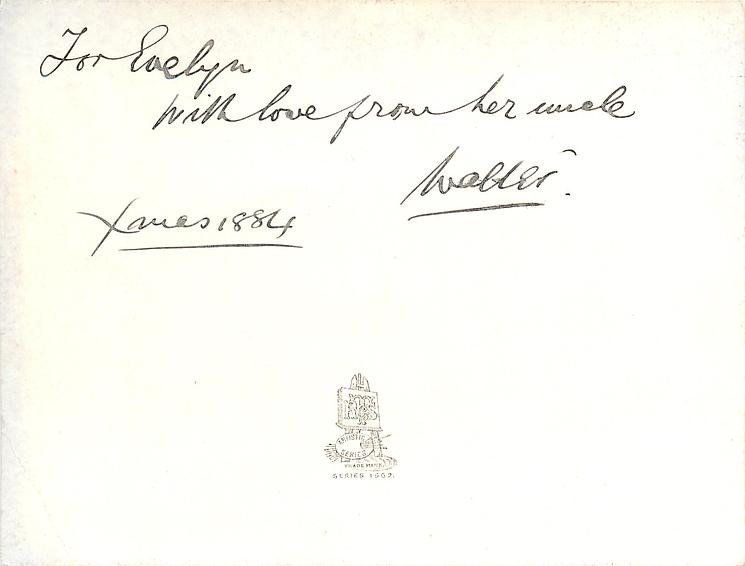 For Evelyn
with love from her uncle
Walter.
Xmas 1884
ARTISTIC
SERIES
TRADE MARK
SERIES 1562.